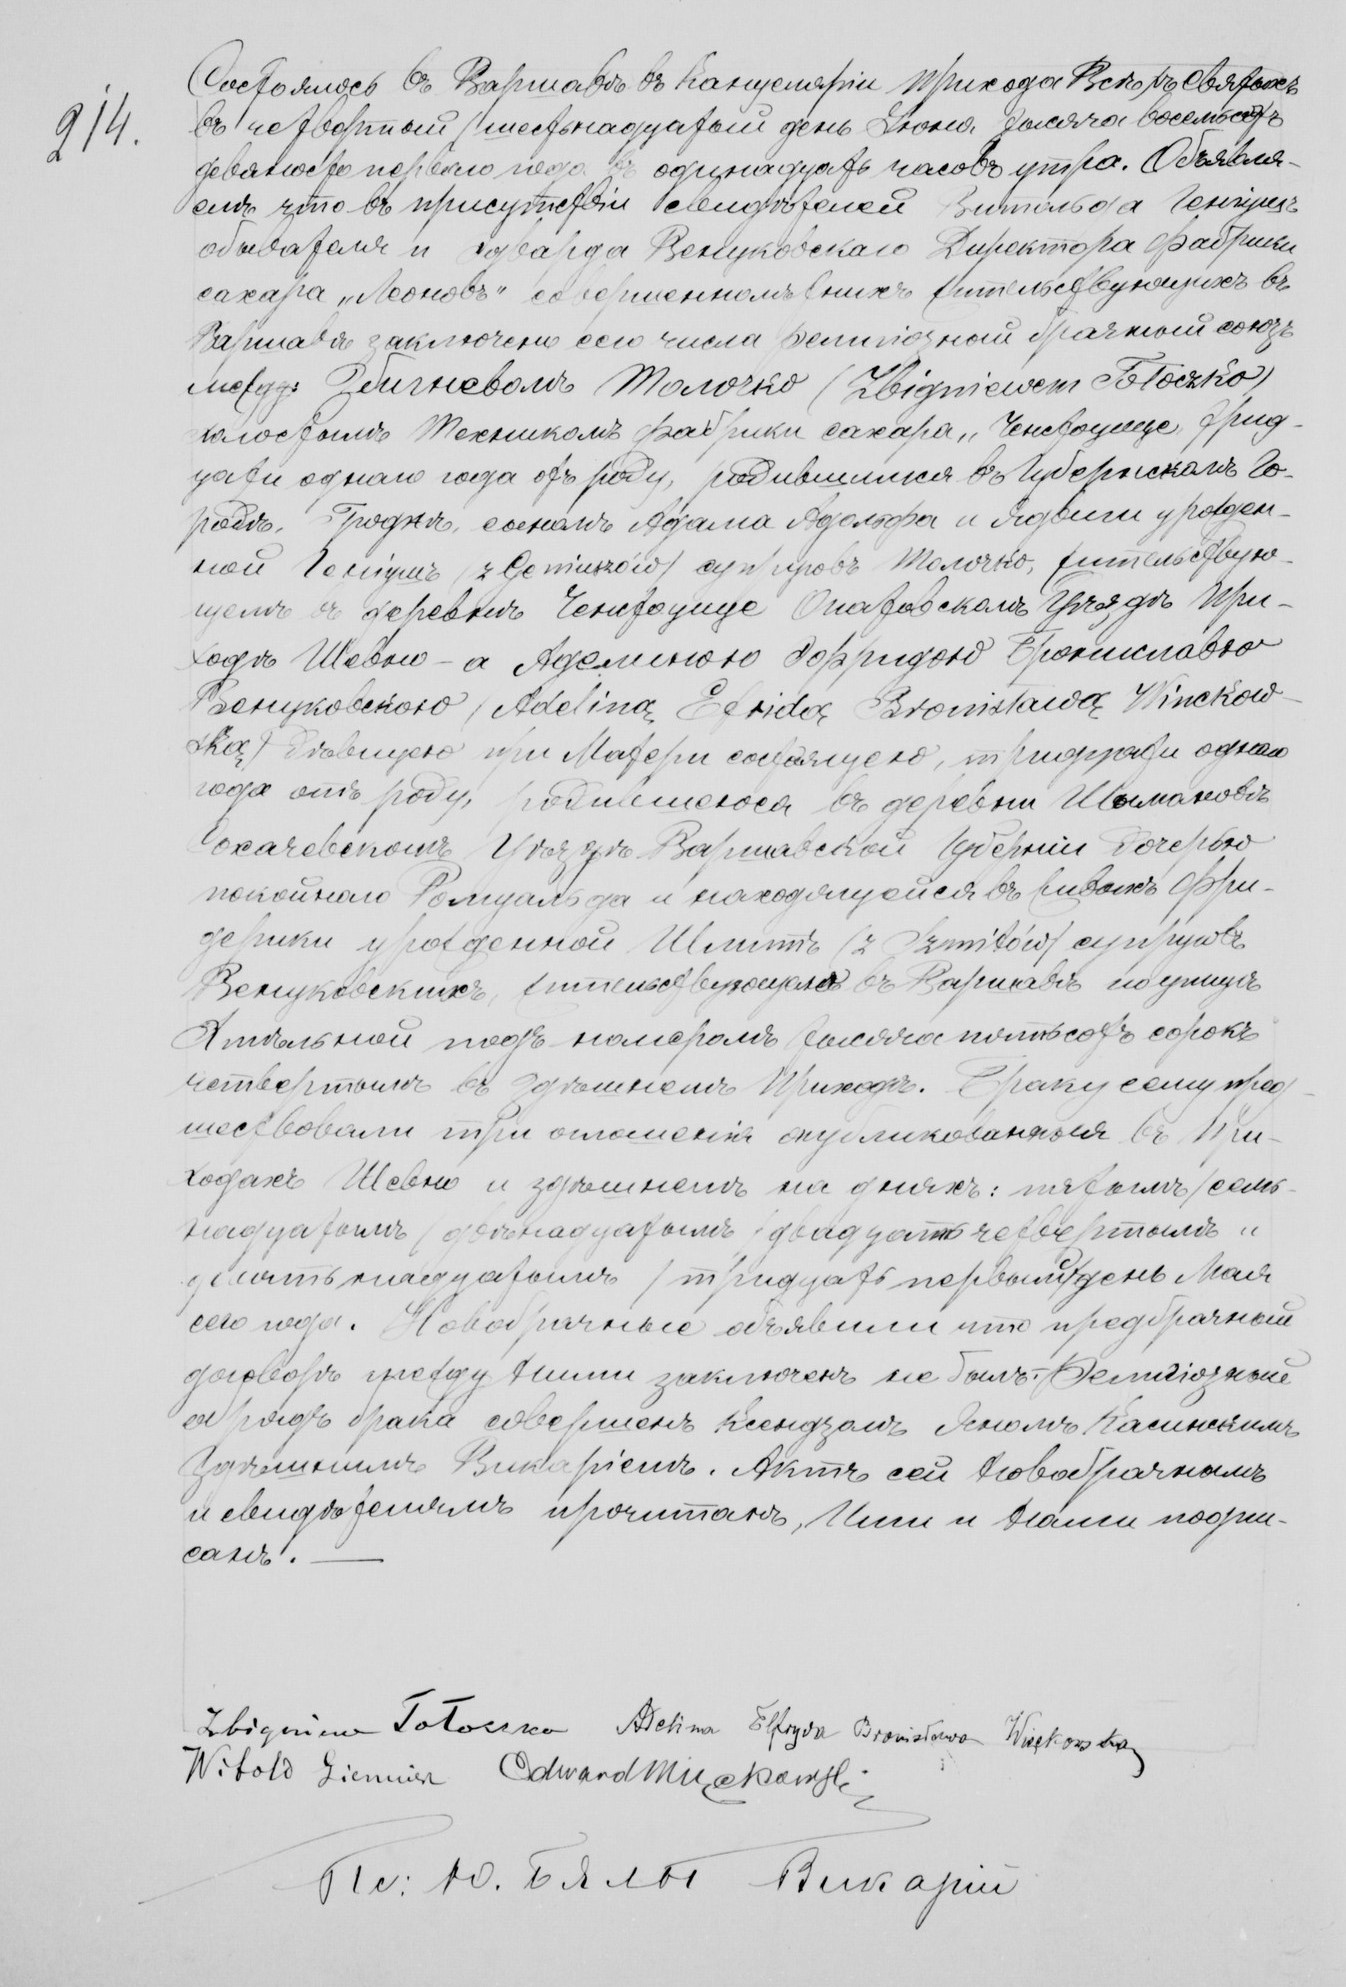 214.
Состоялось въ Варшавѣ въ Канцеляріи прихода Всѣхъ Святыхъ
въ четвертый /шестьнадцатый день Іюня тысяча восемьсотъ
девяносто перваго года въ одинадцать часовъ утра. Объявля-
емъ что въ присутствіи свидѣтелей Витольда
обывателя и Эдварда Венцковскаго Директора фабрики
сахара „Леоновъ" совершеннолѣтнихъ жительствующихъ въ
Варшавѣ заключенъ сего числа религіозный брачный союзъ
между Збигневомъ Толочко (Zbigniewem Tołoczko)
холостымъ Техникомъ фабрики сахара „Ченстоцице, трид-
цати однаго года отъ роду, родившимся въ Губернскомъ Го-
родѣ Гроднѣ, сыномъ Адама Адольфа и Ядвиги урожден-
ной супруговъ Толочко, жительствую-
щемъ въ деревнѣ Ченстоцице Опатовскомъ Уѣздѣ При-
ходѣ Шевно – а Аделиною Эльфридою Брониславою
Венцковскою /Adeliną Elfridą Bronisławą Winckow-
ską/ дѣвицею при Матери состоящею, тридцати однаго
года отъ роду, родившеюся въ деревни Шимановѣ
Сохачевскомъ Уѣздѣ Варшавской Губерніи дочерью
покойнаго Ромуальда и находящейся въ живыхъ Фри-
дерики урожденной Шмитъ (z Szmitów/ супруговъ
Венцковскихъ, жительствующею въ Варшавѣ по улицѣ
подъ номеромъ тысяча пятьсотъ сорокъ
четвертымъ въ здѣшнемъ Приходѣ. Браку сему пред-
шествовали три оглашенія опубликованныя въ При-
ходахъ Шевно и здѣшнемъ на дняхъ: пятымъ/семь-
надцатымъ /двѣнадцатымъ /двадцать четвертымъ и
девятьнадцатымъ /тридцать первымъ/ день Мая
сего года. Новобрачные объявили что предбрачный
договоръ между ними заключенъ не былъ. Религіозный
обрядъ брака совершенъ Ксендзомъ Яномъ Касинскимъ
Здѣшнимъ Викаріемъ. Актъ сей Новобрачнымъ
и свидѣтелямъ прочитанъ, Ими и Нами подпи-
санъ. —
Zbigniew Tołoczko Adelina Elfryda Bronisława Więckowska
Witold Edward Więckowski
Кс: Ю. Бялы Викарій